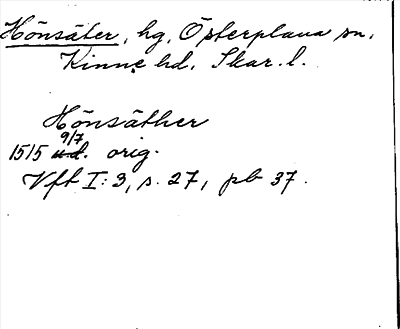 Hönsäter, hg, Österplana sn,
Kinne hd, Skar. l.
Hönsäther
9/7
1515 u.d. orig.
Vft I:3, s. 27, pb 37.